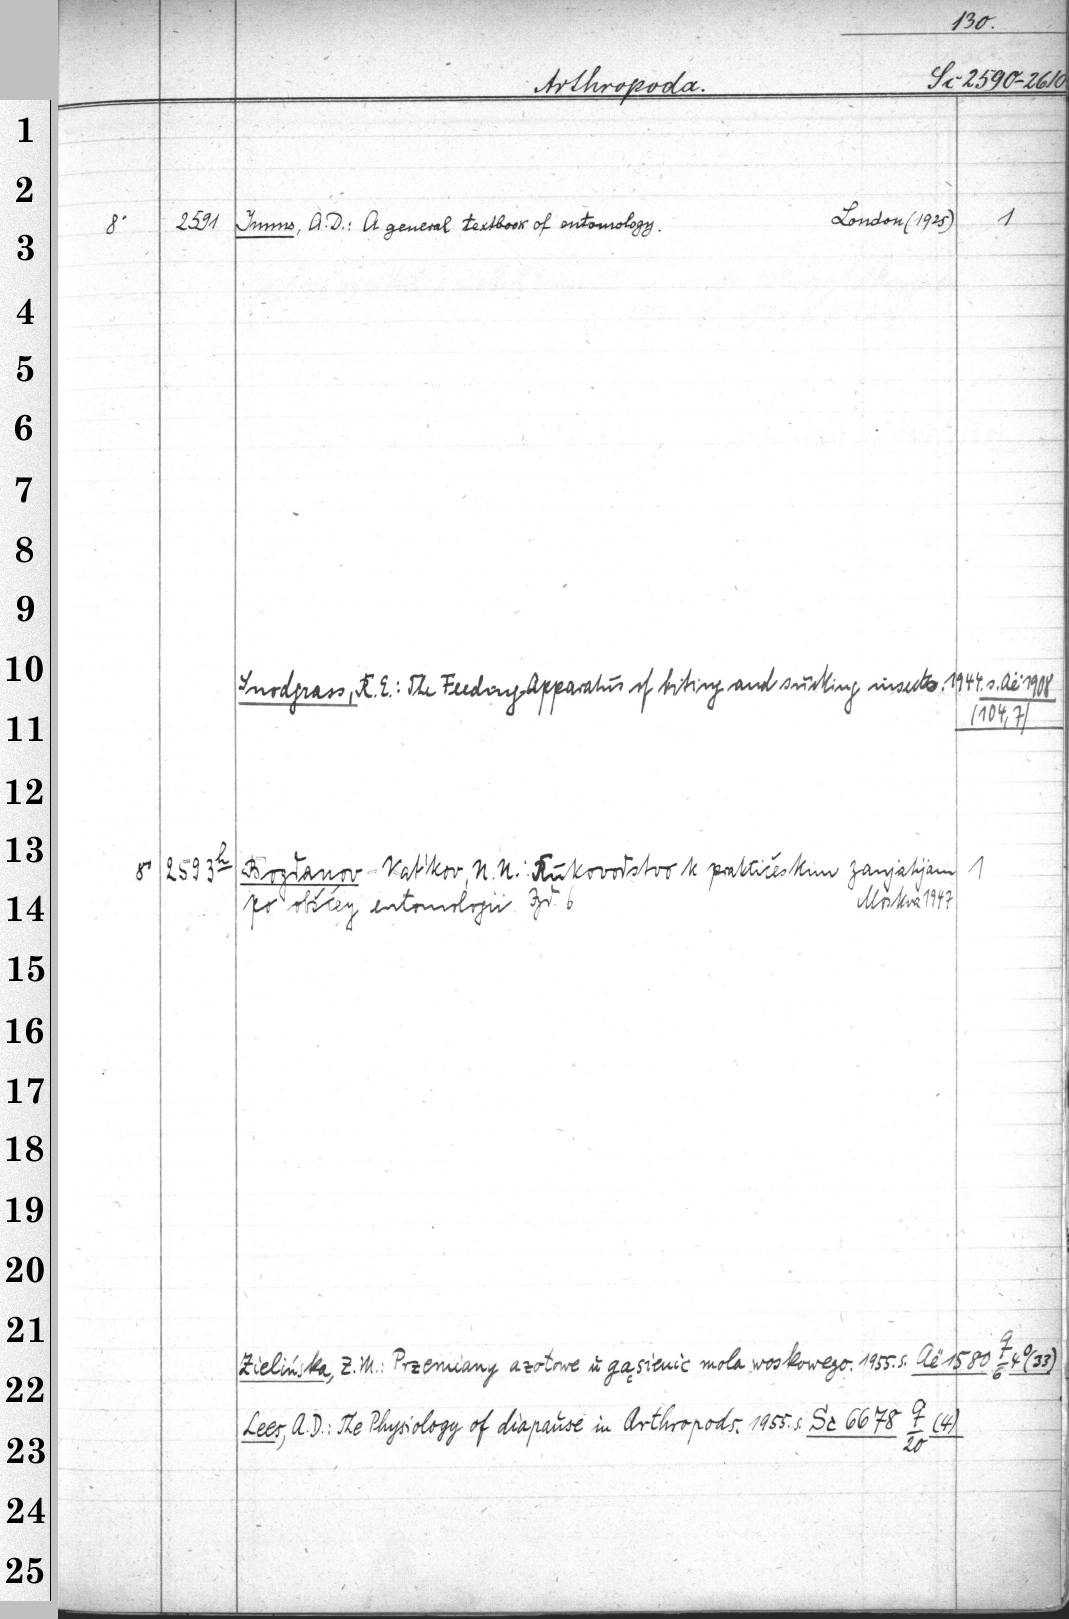 130.
Arthropoda. Sc 2590-2610
1
2
8° 2591 Imms, A.D.: A general textbook of entomology. London (1925) 1
3
4
5
6
7
8
9
10
Snodgrass, R.E.: The Feeding Apparatus of biting and sucking insects. 1944. s. Aë 1908
(104,7)
11
12
13
8° 2593h Bogdanov-Katkov, N.N.: Rukovodstvo k praktičeskim zanjatijam 1
14
po obščey entomologii Izd. 6 Moskva 1947
15
16
17
18
19
20
21
Zielińska, Z.M.: Przemiany azotowe u gąsienic mola woskowego. 1955. s. Aë 1580 9/6 4°(33)
22
Lees, A.D.: The Physiology of diapause in Arthropods. 1955. s. Sc 6678 9/20 (4)
23
24
25